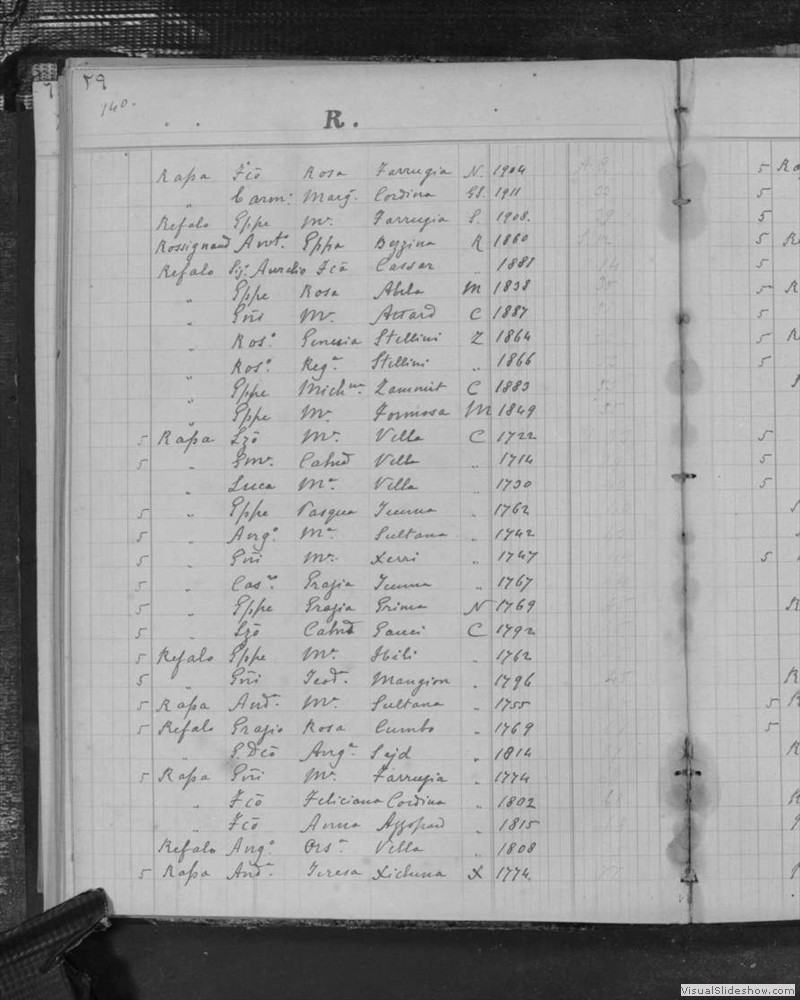 59
140.
R.
Rapa Fcõ Rosa Farrugia N. 1904
„ Carm: Marg. Cordina GS. 1911
Refalo Gppe Mª. Farrugia S. 1908.
Rossignaud Antº. Gppa Bezzina R 1860
Refalo Sg: Aurelio Fcã Cassar „ 1881 5
„ Gppe Rosa Abela M 1838 5 R
„ Gñi Mª. Attard C 1887
„ Rosº Genesia Stellini Z 1864
„ Rosº Regª Stellini „ 1866
„ Gppe Michna. Zammit C 1883
„ Gppe Mª. Formosa M 1849
5 Rapa Lzõ Mª. Vella C 1722 5
5 „ Gmª. Catnd Vella „ 1714 5
„ Luca Mª. Vella „ 1730 5
5 „ Gppe Pasqua Tumma „ 1762
5 „ Angº Mª Sultana „ 1742
5 „ Gñi Mª. Xerri „ 1747 5
5 „ Casª. Grazia Tumma „ 1767
5 „ Gppe Grazia Grima N 1769
5 „ Lzõ Catnd Gauci C 1792
5 Refalo Gppe Mª. Hbili „ 1762
5 „ Gñi Teod. Mangion „ 1796
5 Rapa And. Mª. Sultana „ 1755 5
5 Refalo Grazio Rosa Cumbo „ 1769 5
„ Angª Sejd „ 1814
5 Rapa Gñi Mª. Farrugia „ 1774
„ Fcõ Feliciana Cordina „ 1802
„ Fcõ Anna Azzopard „ 1815
Refalo Angº Orsª Vella „ 1808
5 Rapa And. Teresa Xicluna X 1774.
VisualSlideshow.com